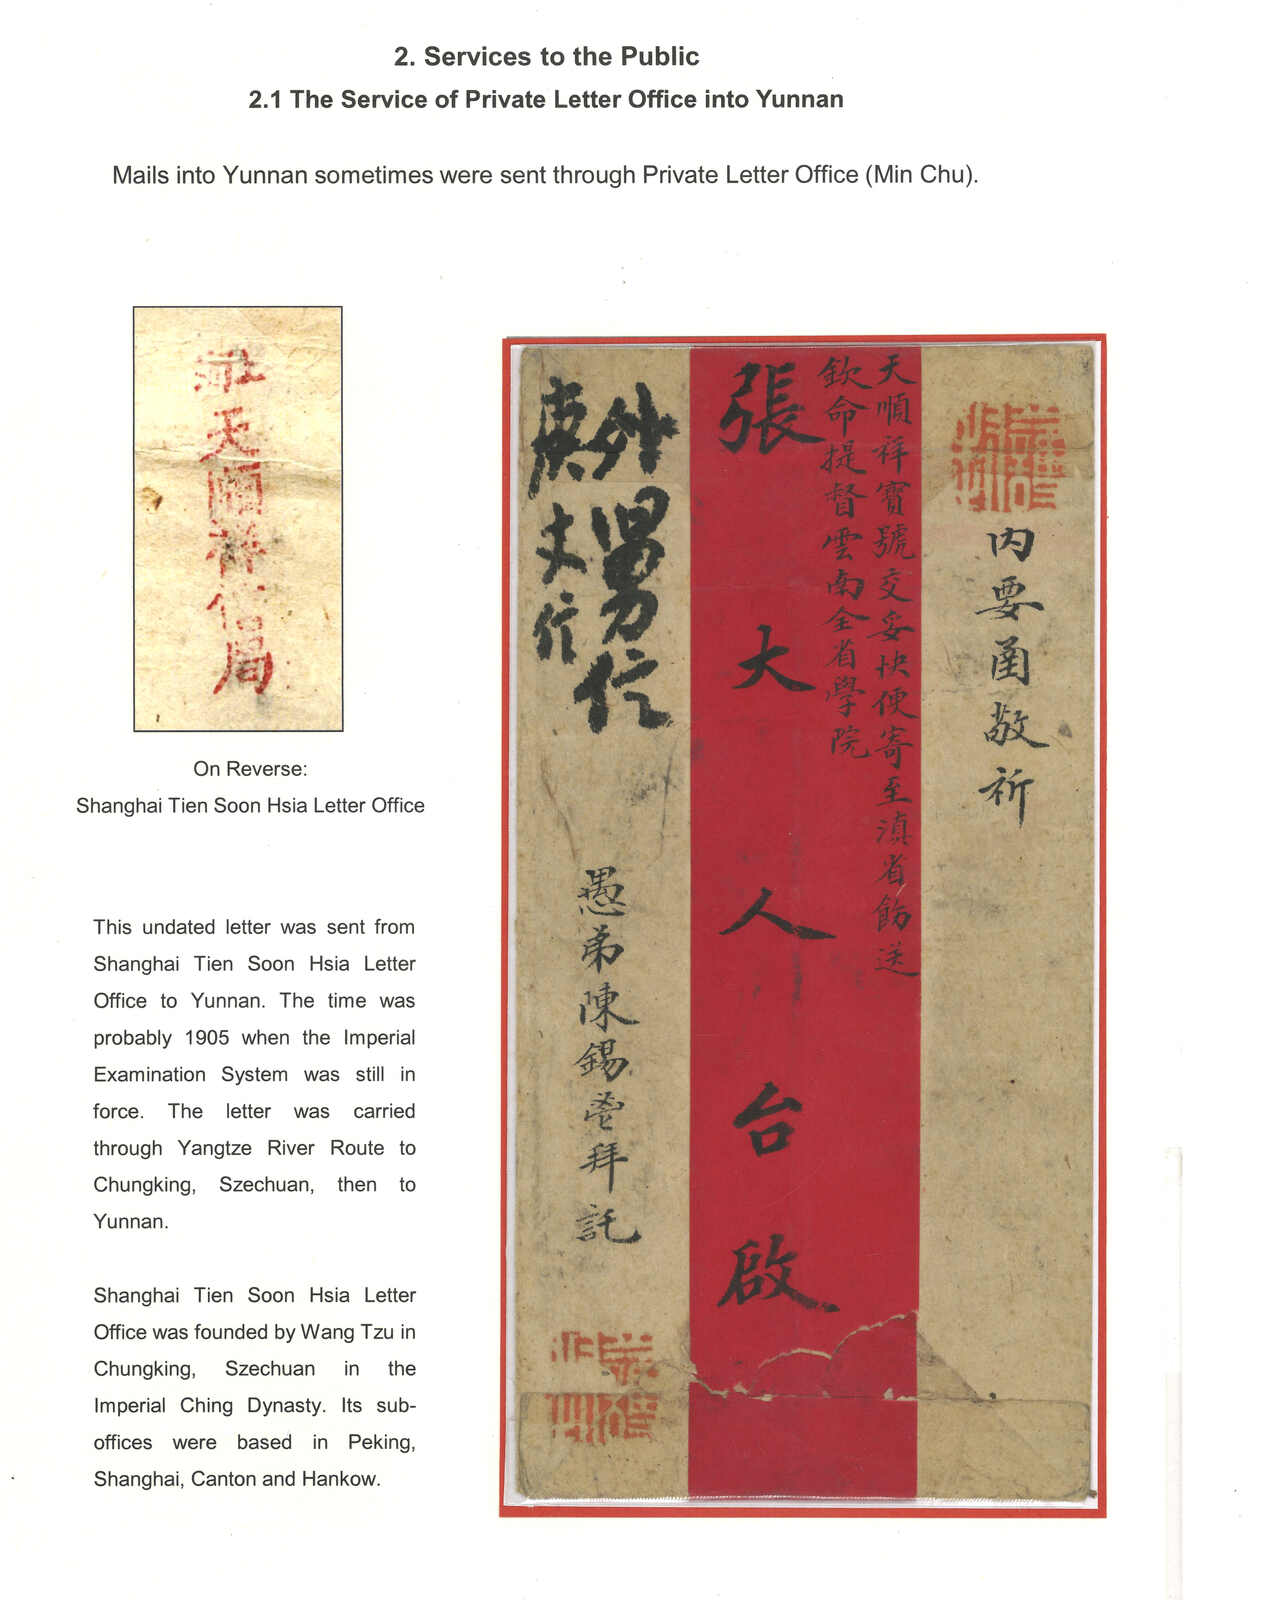 2. Services to the Public
2.1 The Service of Private Letter Office into Yunnan
Mails into Yunnan sometimes were sent through Private Letter Office (Min Chu).
天順祥信局
On Reverse:
Shanghai Tien Soon Hsia Letter Office
This undated letter was sent from
Shanghai Tien Soon Hsia Letter
Office to Yunnan. The time was
probably 1905 when the Imperial
Examination System was still in
force. The letter was carried
through Yangtze River Route to
Chungking, Szechuan, then to
Yunnan.
Shanghai Tien Soon Hsia Letter
Office was founded by Wang Tzu in
Chungking, Szechuan in the
Imperial Ching Dynasty. Its sub-
offices were based in Peking,
Shanghai, Canton and Hankow.
內要函敬祈
天順祥寶號交妥快便寄至滇省飭送
欽命提督雲南全省學院
張大人台啟
外舅信
丈信
愚弟陳錫拜託